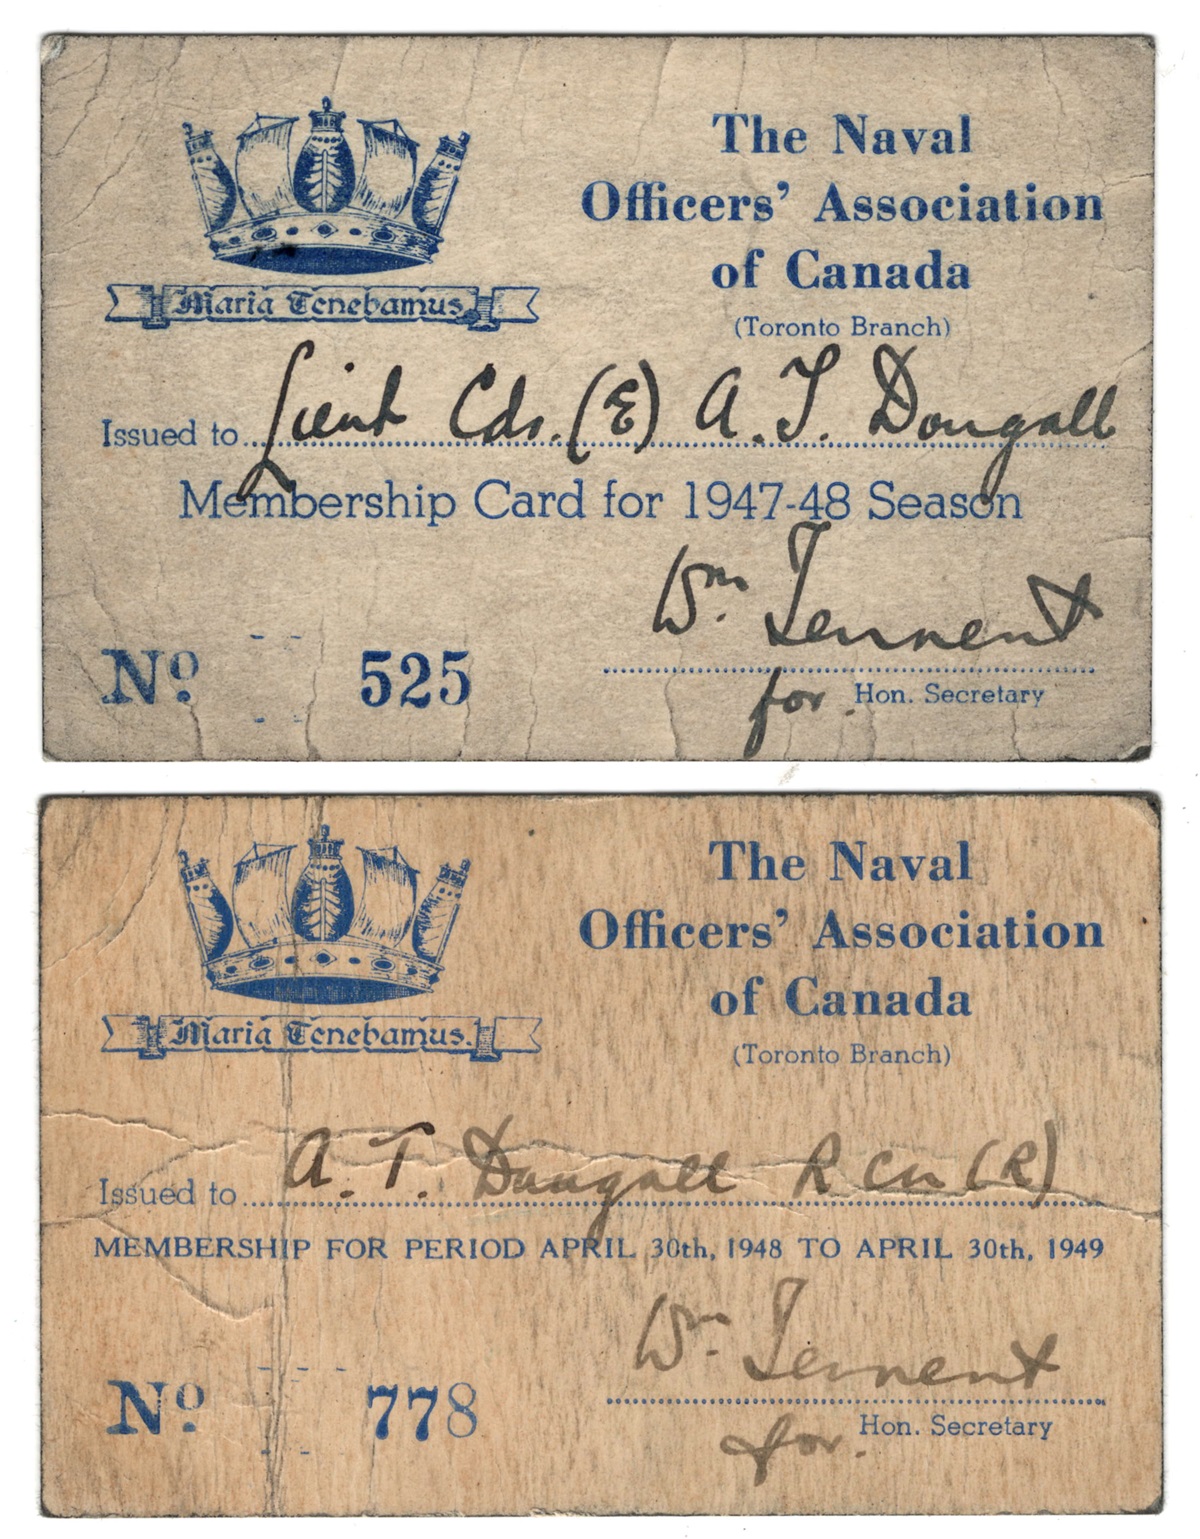 The Naval
Officers' Association
of Canada
(Toronto Branch)
Maria Tenebamus.
Issued to Lieut Cdr. (E) A. T. Dougall
Membership Card for 1947-48 Season
Wm. Tennent
for. Hon. Secretary
No 525
The Naval
Officers' Association
of Canada
(Toronto Branch)
Maria Tenebamus.
Issued to A. T. Dougall RCN (R)
MEMBERSHIP FOR PERIOD APRIL 30th, 1948 TO APRIL 30th, 1949
Wm. Tennent
for. Hon. Secretary
No 778